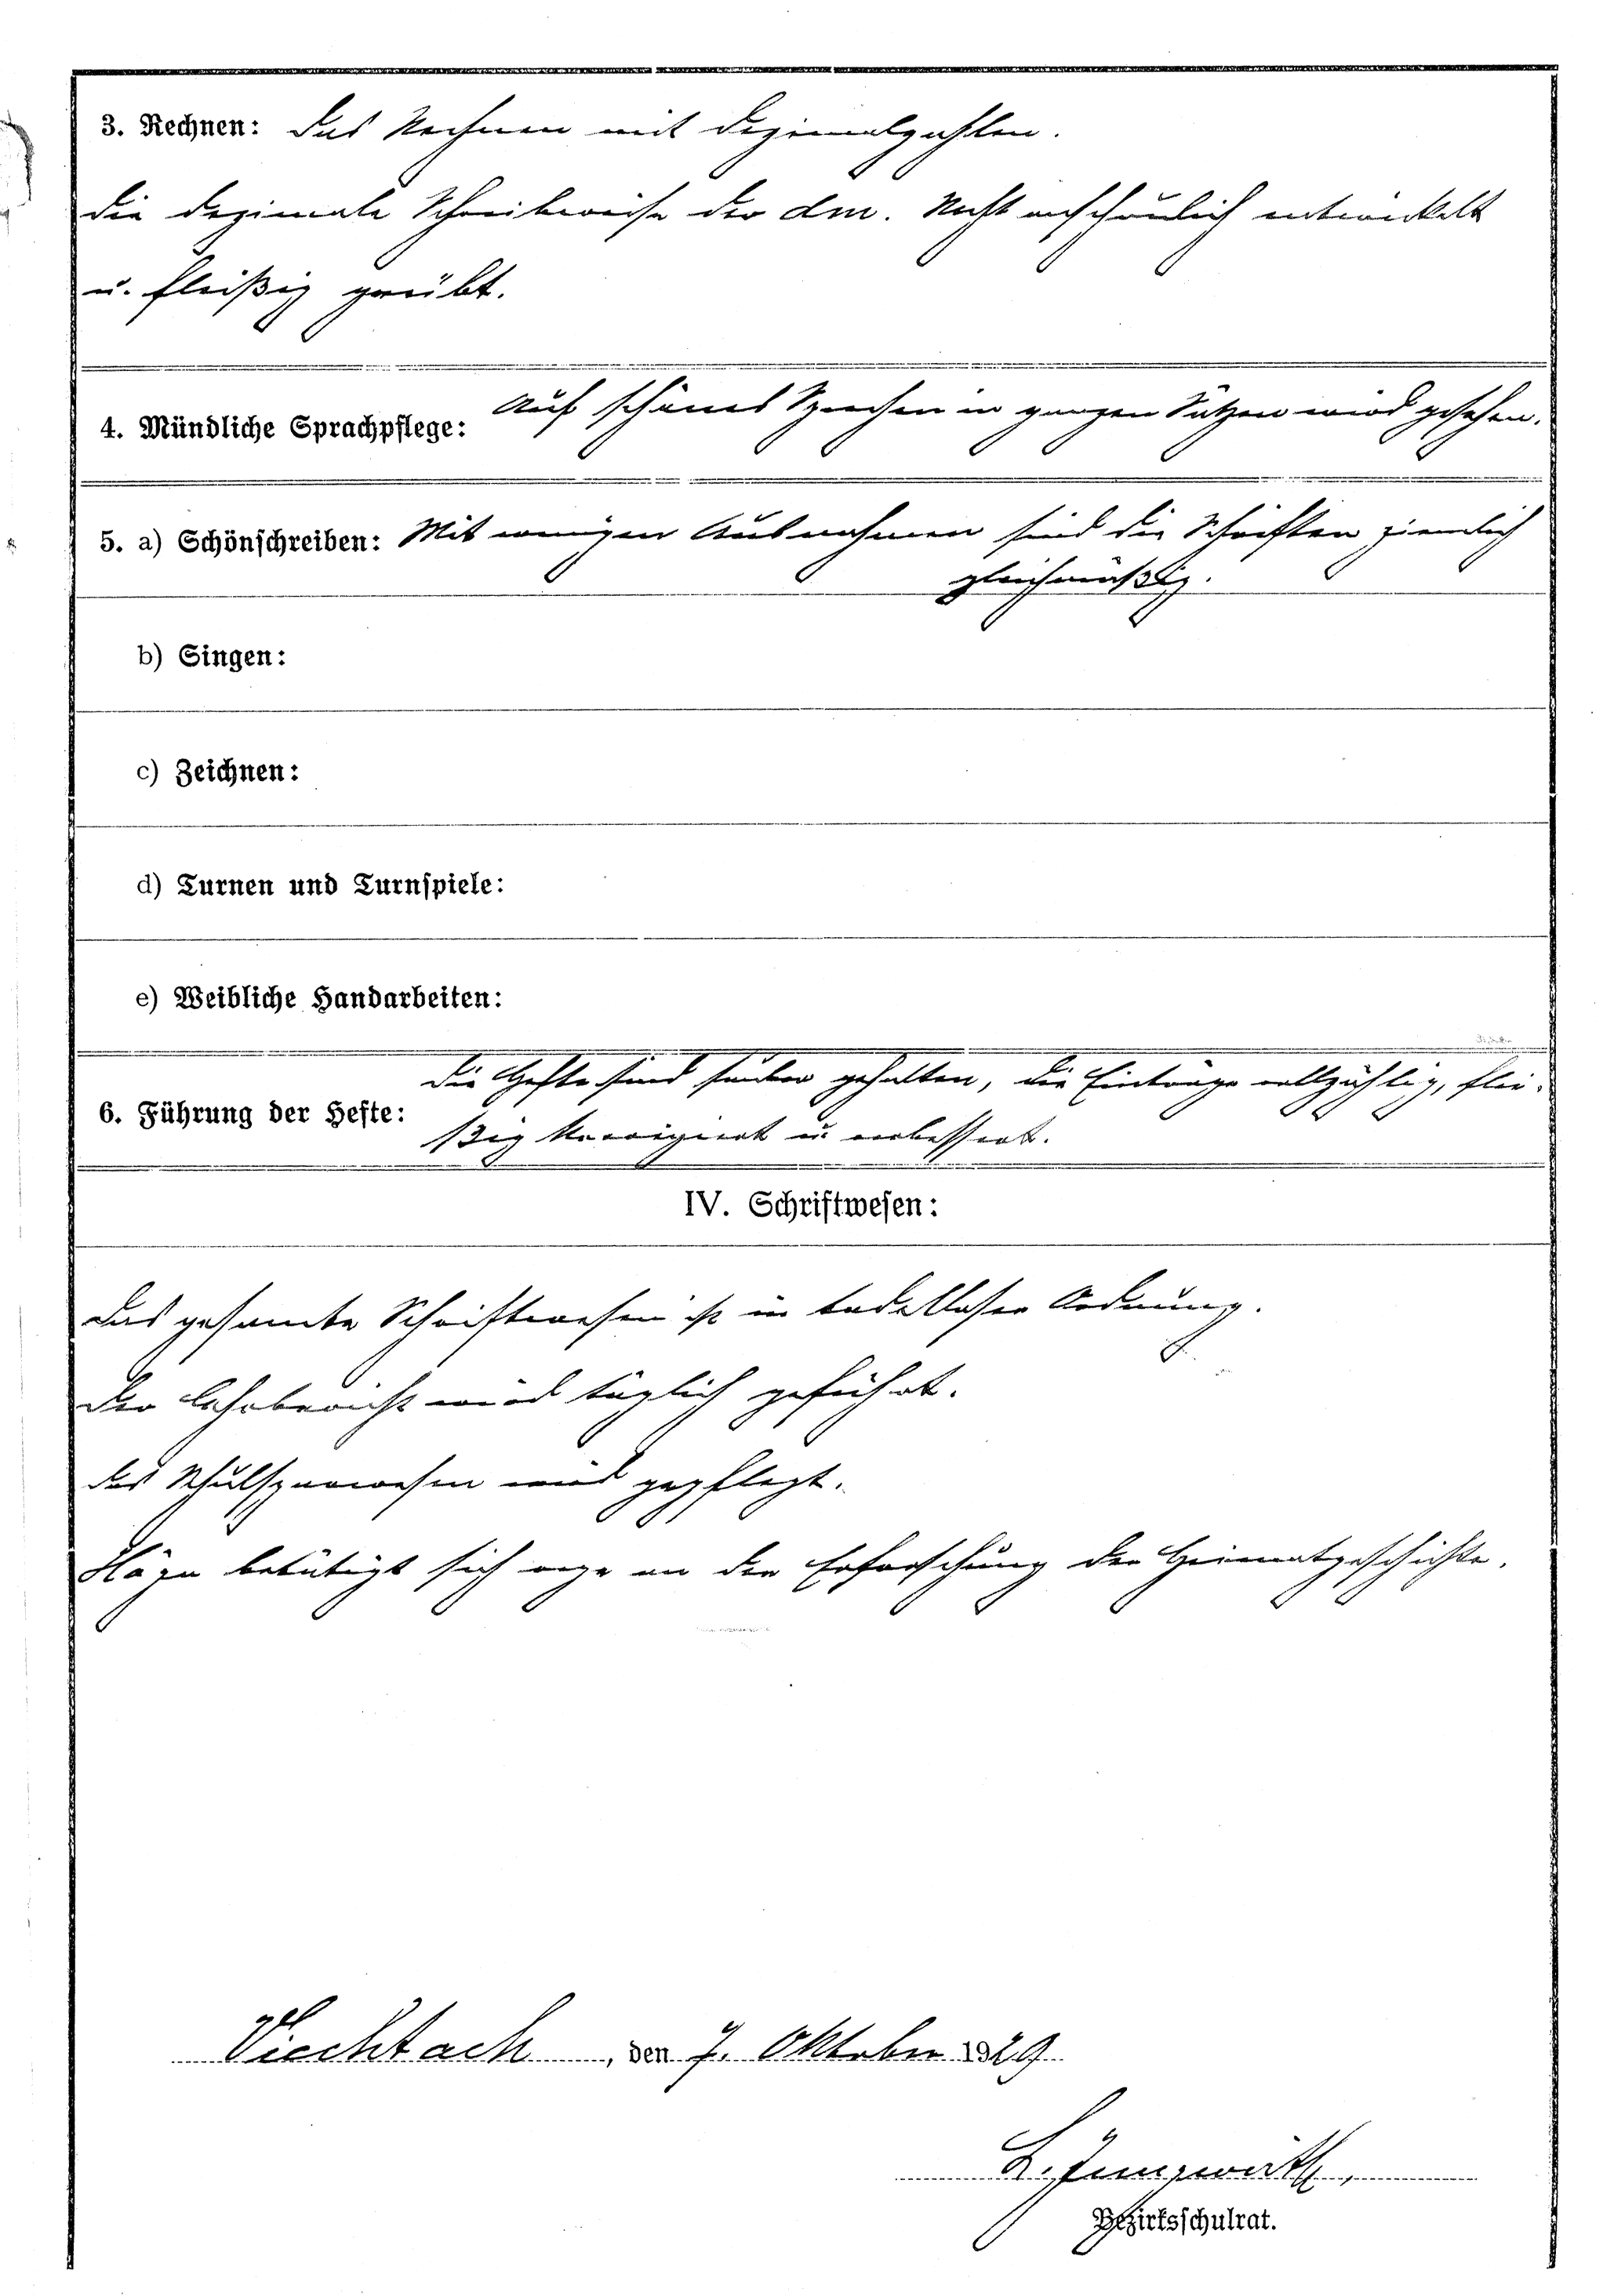 3. Rechnen: Das Rechnen mit Dezimalzahlen.
Die dezimale Schreibweise der dm. Recht anschaulich entwickelt
u. fleißig geübt.
4. Mündliche Sprachpflege: Auf schönes Sprechen in ganzen Sätzen wird gesehen.
5. a) Schönschreiben: Mit wenigen Ausnahmen sind die Schriften ziemlich
gleichmäßig.
b) Singen:
c) Zeichnen:
d) Turnen und Turnspiele:
e) Weibliche Handarbeiten:
6. Führung der Hefte: Die Hefte sind sauber gehalten, die Einträge vollzählig, flei-
ßig korrigiert u. verbessert.
IV. Schriftwesen:
Das gesamte Schriftwesen ist in tadelloser Ordnung.
Der Lehrbericht wird täglich geführt.
Das Schulsparwesen wird gepflegt.
betätigt sich rege an der Erforschung der Heimatgeschichte.
Viechtach, den 7. Oktober 1929
Bezirksschulrat.